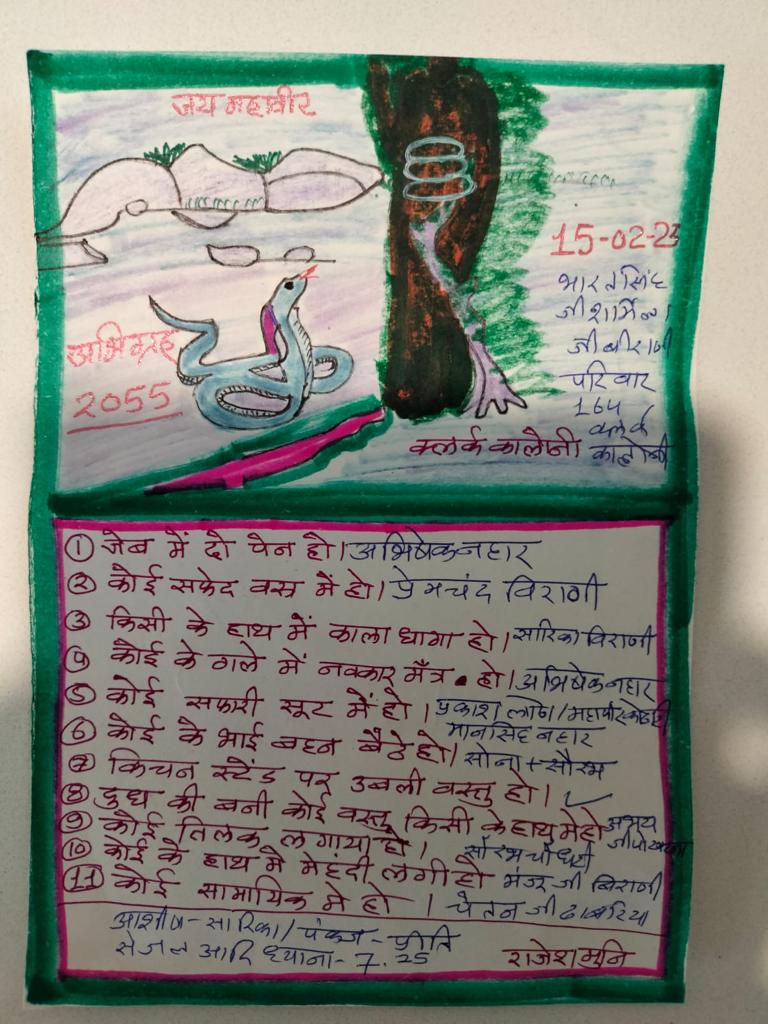 जय महावीर
15-02-25
अभिग्रह
2055
भारतसिंह
जी शर्मिला
जी बीराणी
परिवार
164
क्लर्क
कालोनी
क्लर्क कालोनी
① जेब में दो पेन हो। अभिषेक नहार
② कोई सफेद वस्त्र में हो। प्रेमचंद विराणी
③ किसी के हाथ में काला धागा हो। सारिका विराणी
④ कोई के गले में नवकार मंत्र हो। अभिषेक नहार
⑤ कोई सफारी सूट में हो। प्रकाश
⑥ कोई के भाई बहन बैठे हो। सोना + सौरभ
मानसिंह नहार
⑦ किचन स्टैंड पर उबली वस्तु हो। ✓
⑧ दुध की बनी कोई वस्तु किसी के हाथ मे हो अभय
⑨ कोई तिलक लगाया हो। सौरभ चौधरी
⑩ कोई के हाथ मे मेहंदी लगी हो मंजू जी बिराणी
⑪ कोई सामायिक मे हो। चेतन जी
आशीष - सारिका / पंकज - प्रीति
सेजल आदि ध्याना - 7.25
राजेश मुनि